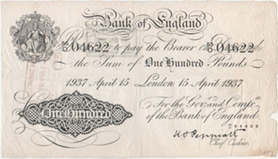 Bank of England
04622 to pay the Bearer 04622
the Sum of One Hundred Pounds
1937 April 15 London 15 April 1937
For the Gov.r and Comp.a
of the Bank of England
One Hundred
K O Peppiatt
Chief Cashier